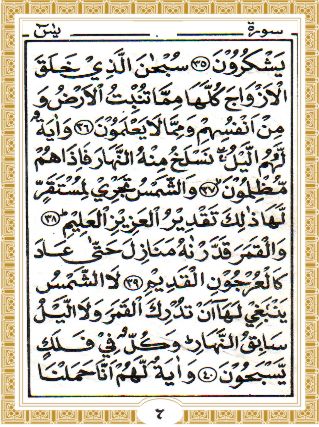 سورة يٰسٓ
يَشْكُرُوْنَ ﴿٣٥﴾ سُبْحٰنَ الَّذِيْ خَلَقَ
الْاَزْوَاجَ كُلَّهَا مِمَّا تُنْۢبِتُ الْاَرْضُ وَ
مِنْ اَنْفُسِهِمْ وَمِمَّا لَا يَعْلَمُوْنَ ﴿٣٦﴾ وَاٰيَةٌ
لَّهُمُ الَّيْلُ ۖ نَسْلَخُ مِنْهُ النَّهَارَ فَاِذَاهُمْ
مُّظْلِمُوْنَ ﴿٣٧﴾ وَالشَّمْسُ تَجْرِيْ لِمُسْتَقَرٍّ
لَّهَا ذٰلِكَ تَقْدِيْرُ الْعَزِيْزِ الْعَلِيْمِ ﴿٣٨﴾
وَالْقَمَرَ قَدَّرْنٰهُ مَنَازِلَ حَتّٰى عَادَ
كَالْعُرْجُوْنِ الْقَدِيْمِ ﴿٣٩﴾ لَا الشَّمْسُ
يَنْۢبَغِيْ لَهَآ اَنْ تُدْرِكَ الْقَمَرَ وَلَا الَّيْلُ
سَابِقُ النَّهَارِ ؕ وَكُلٌّ فِيْ فَلَكٍ
يَّسْبَحُوْنَ ﴿٤٠﴾ وَاٰيَةٌ لَّهُمْ اَنَّا حَمَلْنَا
٦